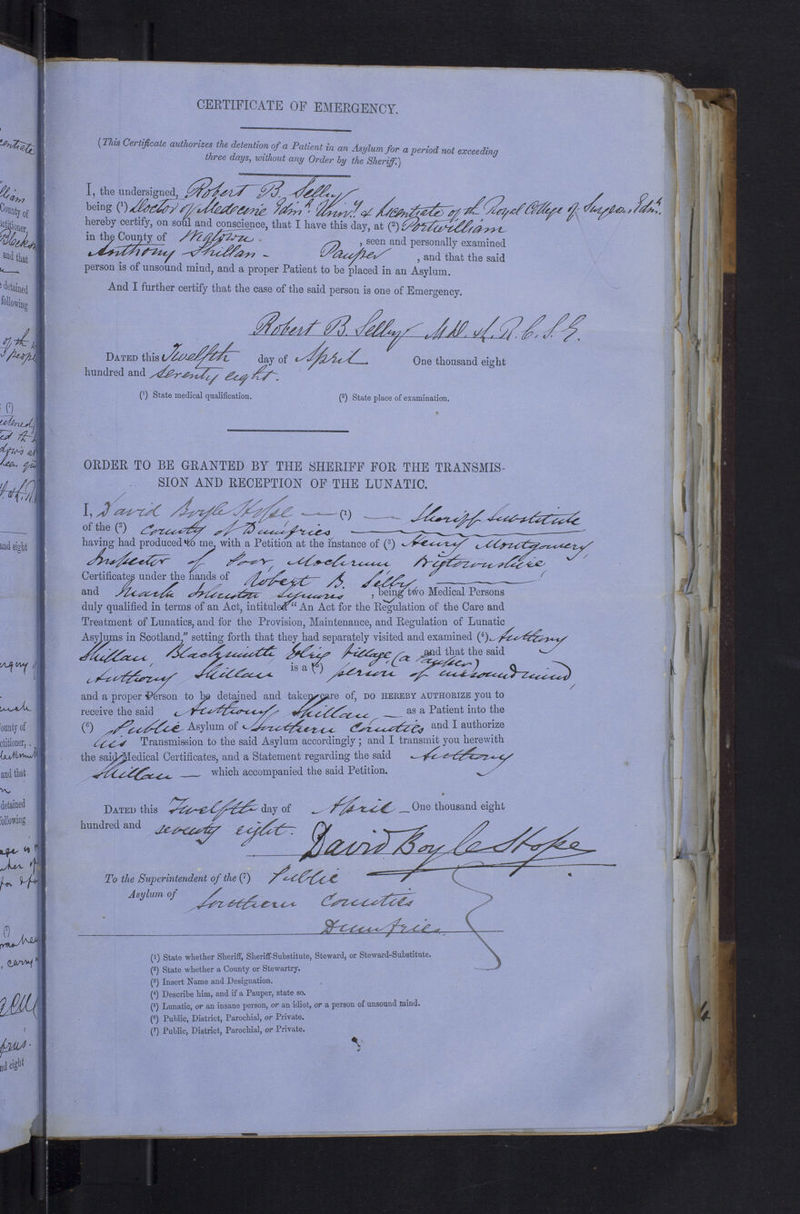 CERTIFICATE OF EMERGENCY.
(This Certificate authorizes the detention of a Patient in an Asylum for a period not exceeding
three days, without any Order by the Sheriff.)
I, the undersigned, Robert B. Selby
being (¹) Doctor of Medecine Edinr. Univy. & Licentiate of the Royal College of Surgeons Edinr.
hereby certify, on soul and conscience, that I have this day, at (²) Portwilliam
in the County of Wigtown - , seen and personally examined
Anthony Skillan - Pauper , and that the said
person is of unsound mind, and a proper Patient to be placed in an Asylum.
And I further certify that the case of the said person is one of Emergency.
Robert B. Selby M.D. L.R.C.S.E.
DATED this Twelfth day of April One thousand eight
hundred and seventy eight.
(¹) State medical qualification. (²) State place of examination.
ORDER TO BE GRANTED BY THE SHERIFF FOR THE TRANSMIS-
SION AND RECEPTION OF THE LUNATIC.
I, David Boyle Hope — (¹) — Sheriff Substitute
of the (²) County of Dumfries
having had produced to me, with a Petition at the instance of (³) Henry Montgomery,
Inspector of Poor, Mochrum Wigtownshire,
Certificates under the hands of Robert B. Selby
and Mark Symons , being two Medical Persons
duly qualified in terms of an Act, intituled "An Act for the Regulation of the Care and
Treatment of Lunatics, and for the Provision, Maintenance, and Regulation of Lunatic
Asylums in Scotland," setting forth that they had separately visited and examined (⁴) Anthony
Skillan, Blacksmith Elrig Village, (a Pauper) and that the said
Anthony Skillan is a (⁵) person of unsound mind,
and a proper Person to be detained and taken care of, DO HEREBY AUTHORIZE you to
receive the said Anthony Skillan — as a Patient into the
(⁶) Public Asylum of Southern Counties and I authorize
his Transmission to the said Asylum accordingly; and I transmit you herewith
the said Medical Certificates, and a Statement regarding the said Anthony
Skillan — which accompanied the said Petition.
DATED this Twelfth day of April — One thousand eight
hundred and seventy eight.
David Boyle Hope
To the Superintendent of the (⁷) Public
Asylum of Southern Counties
Dumfries.
(¹) State whether Sheriff, Sheriff-Substitute, Steward, or Steward-Substitute.
(²) State whether a County or Stewartry.
(³) Insert Name and Designation.
(⁴) Describe him, and if a Pauper, state so.
(⁵) Lunatic, or an insane person, or an idiot, or a person of unsound mind.
(⁶) Public, District, Parochial, or Private.
(⁷) Public, District, Parochial, or Private.